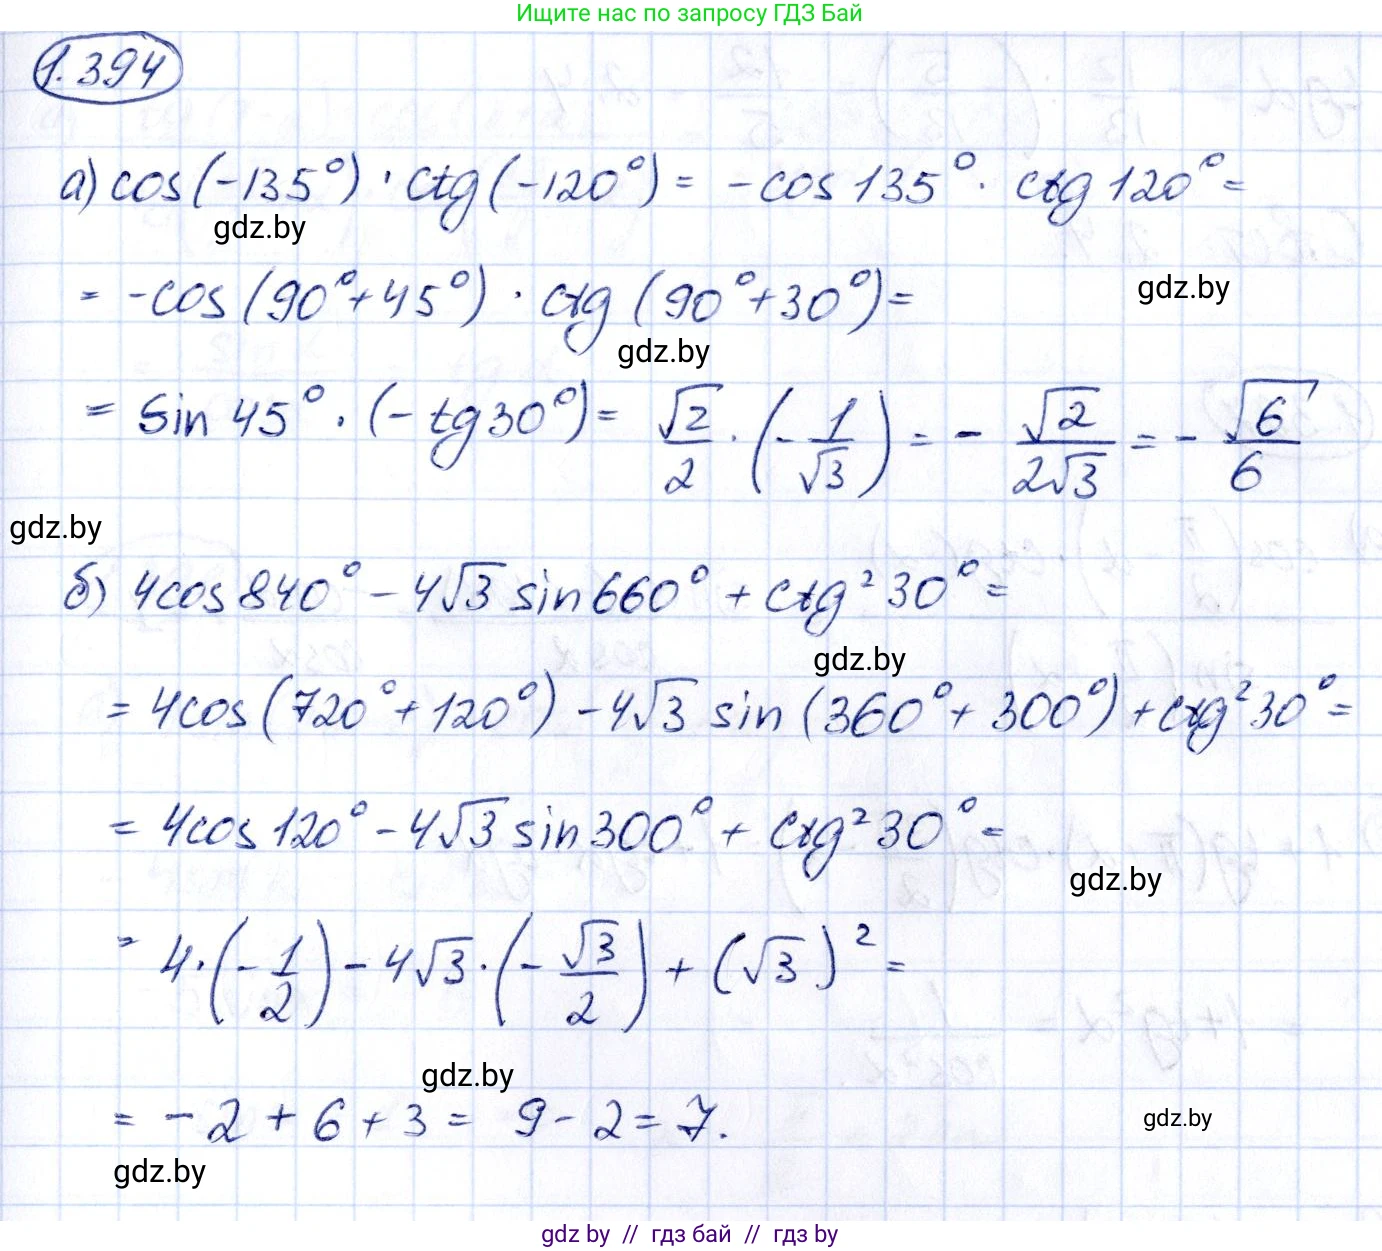 Ищите нас по запросу ГДЗ Бай
1.394
а) cos(-135°) · ctg(-120°) = -cos135° · ctg120° =
gdz.by
= -cos(90°+45°) · ctg(90°+30°) =
gdz.by
gdz.by
= sin 45° · (-tg30°) = √2/2 · (-1/√3) = - √2/2√3 = - √6/6
gdz.by
б) 4cos840° - 4√3 sin660° + ctg²30° =
gdz.by
= 4cos(720°+120°) - 4√3 sin(360°+300°) + ctg²30° =
= 4cos120° - 4√3 sin300° + ctg²30° =
gdz.by
= 4·(-1/2) - 4√3·(-√3/2) + (√3)² =
gdz.by
= -2 + 6 + 3 = 9 - 2 = 7.
gdz.by
gdz.by
gdz by // гдз бай // гдз by